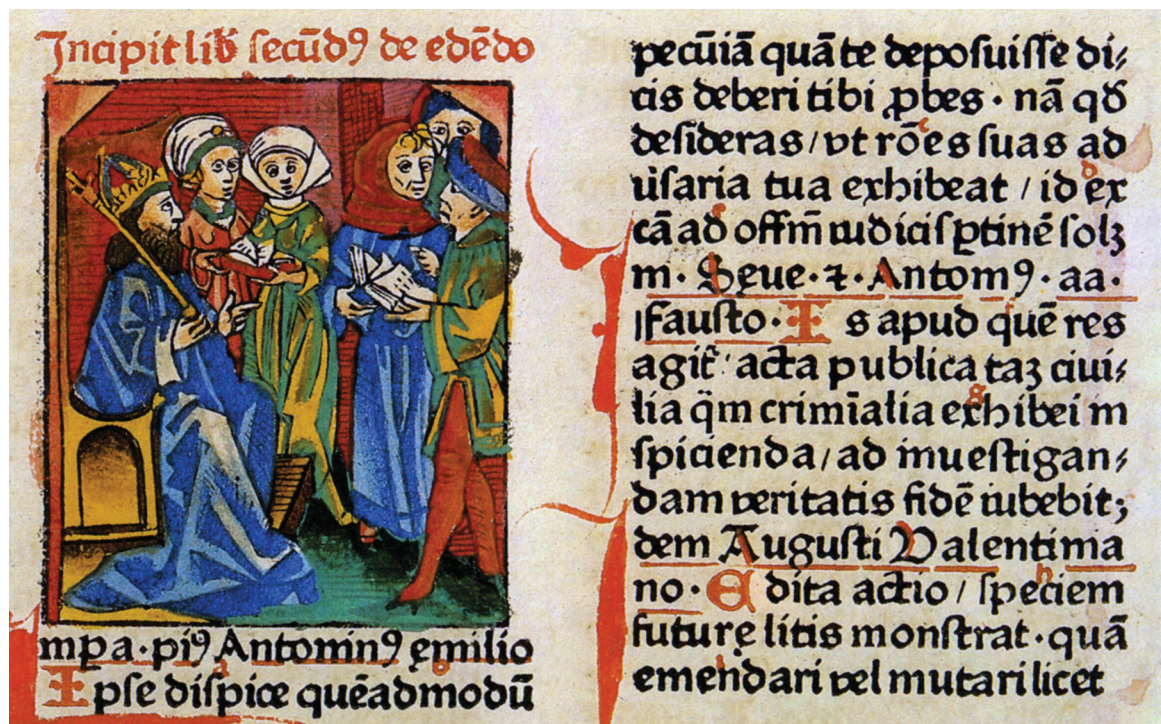 Incipit lib̅ secūdꝰ de edēdo
mp̱ a · piꝰ Antoninꝰ emilio
Ipse dispice quēadmodū
pecūiā quā te deposuisse di⸗
cis deberi tibi ꝓbes · nā qđ
desideras / vt rōes suas ad
ūsaria tua exhibeat / id ex
cā ad offm̄ iudicis ꝑtinē solꝫ
m · Seue · ⁊ · Antoniꝰ · aa ·
Fausto · Is apud quē res
agit᷑ acta publica taꝫ ciui⸗
lia q̄m crimīalia exhibei in
spicienda / ad inuestigan⸗
dam veritatis fidē iubebit ;
dem Augusti Valentinia
no · Edita actio / speciem
future litis monstrat · quā
emendari vel mutari licet